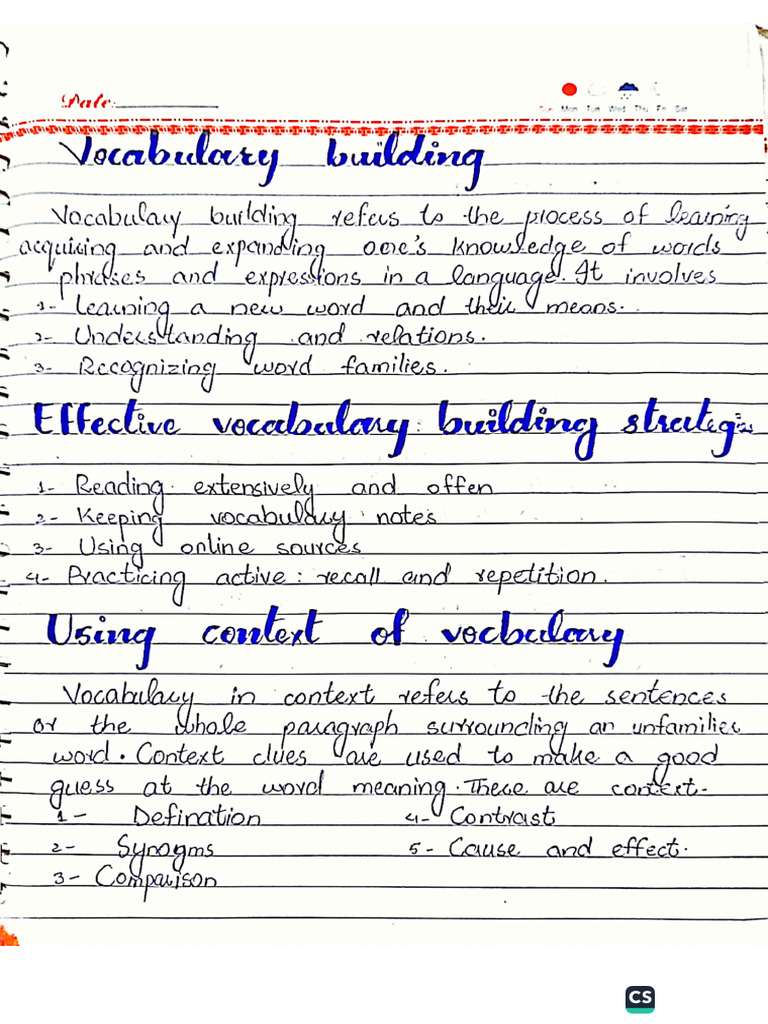 Date:
Sun Mon Tue Wed Thu Fri Sat
Vocabulary building
Vocabulary building refers to the process of learning
acquiring and expanding one's knowledge of words
phrases and expressions in a language. It involves
1- Learning a new word and their means.
2- Understanding and relations.
3- Recognizing word families.
Effective vocabulary building strateg
1- Reading extensively and offen
2- Keeping vocabulary notes
3- Using online sources
4- Practicing active: recall and repetition.
Using context of vocbulary
Vocabulary in context refers to the sentences
or the whole paragraph surrounding an unfamilier
word. Context clues are used to make a good
guess at the word meaning. There are context-
1- Defination 4- Contrast
2- Synogms 5- Cause and effect.
3- Comparison
CS